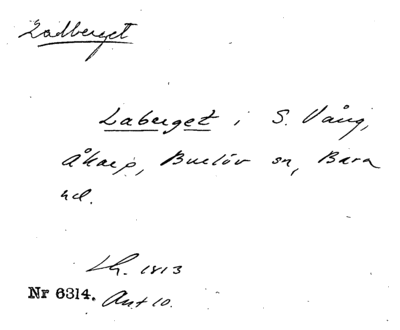 Ladberget
Laberget i S. Vång,
Åkarp, Burlöv sn, Bara
hd.
Lh. 1813
Nr 6314. Akt 10.